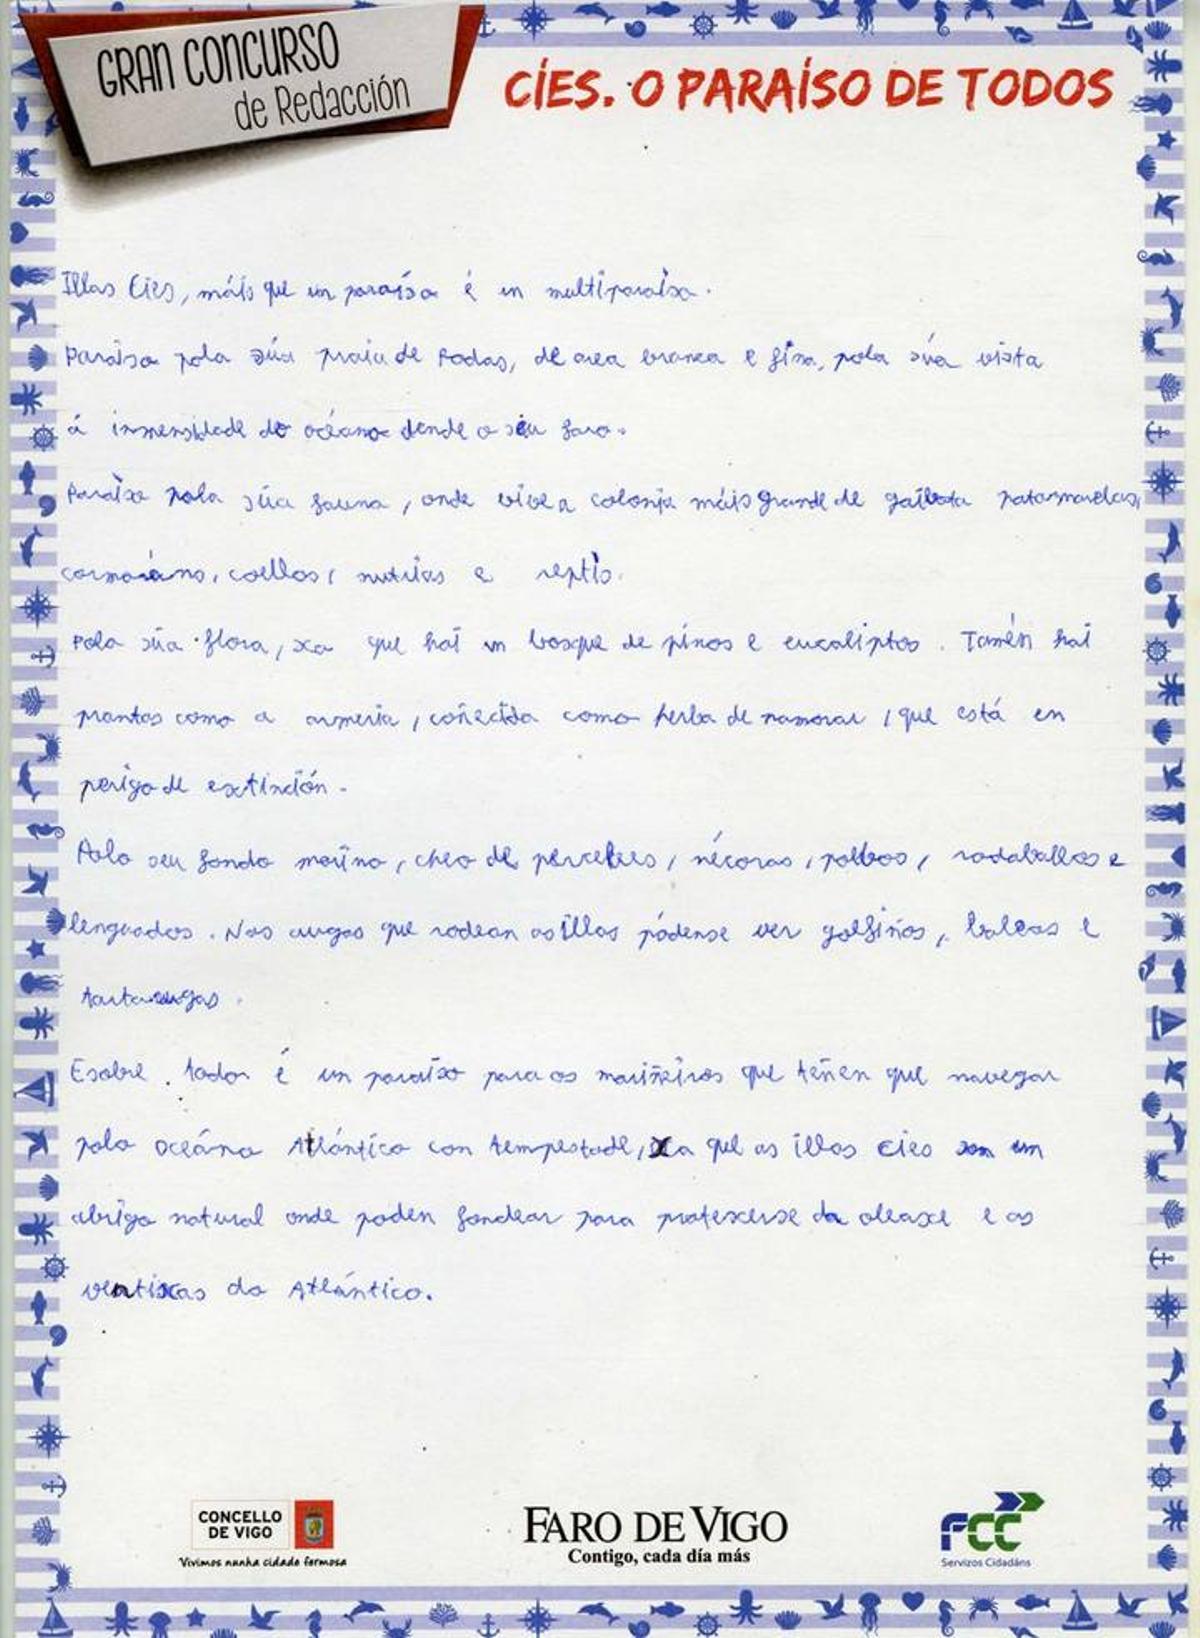 GRAN CONCURSO
de Redacción
CÍES. O PARAÍSO DE TODOS
Illas Cíes, máis que un paraíso é un multiparaíso.
Paraíso pola súa praia de Rodas, de area branca e fina, pola súa vista
á inmensidade do océano dende o seu faro.
Paraíso pola súa fauna, onde vive a colonia máis grande de gaivota patasmarelas,
cormoráns, coellos, nutrias e reptís.
Pola súa flora, xa que hai un bosque de pinos e eucaliptos. Tamén hai
prantas como a armeria, coñecida como herba de namorar, que está en
perigo de extinción.
Polo seu fondo mariño, cheo de percebes, nécoras, polbos, rodaballos e
lenguados. Nas augas que rodean as illas pódense ver golfiños, baleas e
tartarugas.
E sobre todo é un paraíso para os mariñeiros que teñen que navegar
polo océano Atlántico con tempestade, xa que as illas Cíes son un
abrigo natural onde poden fondear para protexerse da oleaxe e os
ventiscas do Atlántico.
CONCELLO
DE VIGO
Vivimos nunha cidade fermosa
FARO DE VIGO
Contigo, cada día más
FCC
Servizos Cidadáns